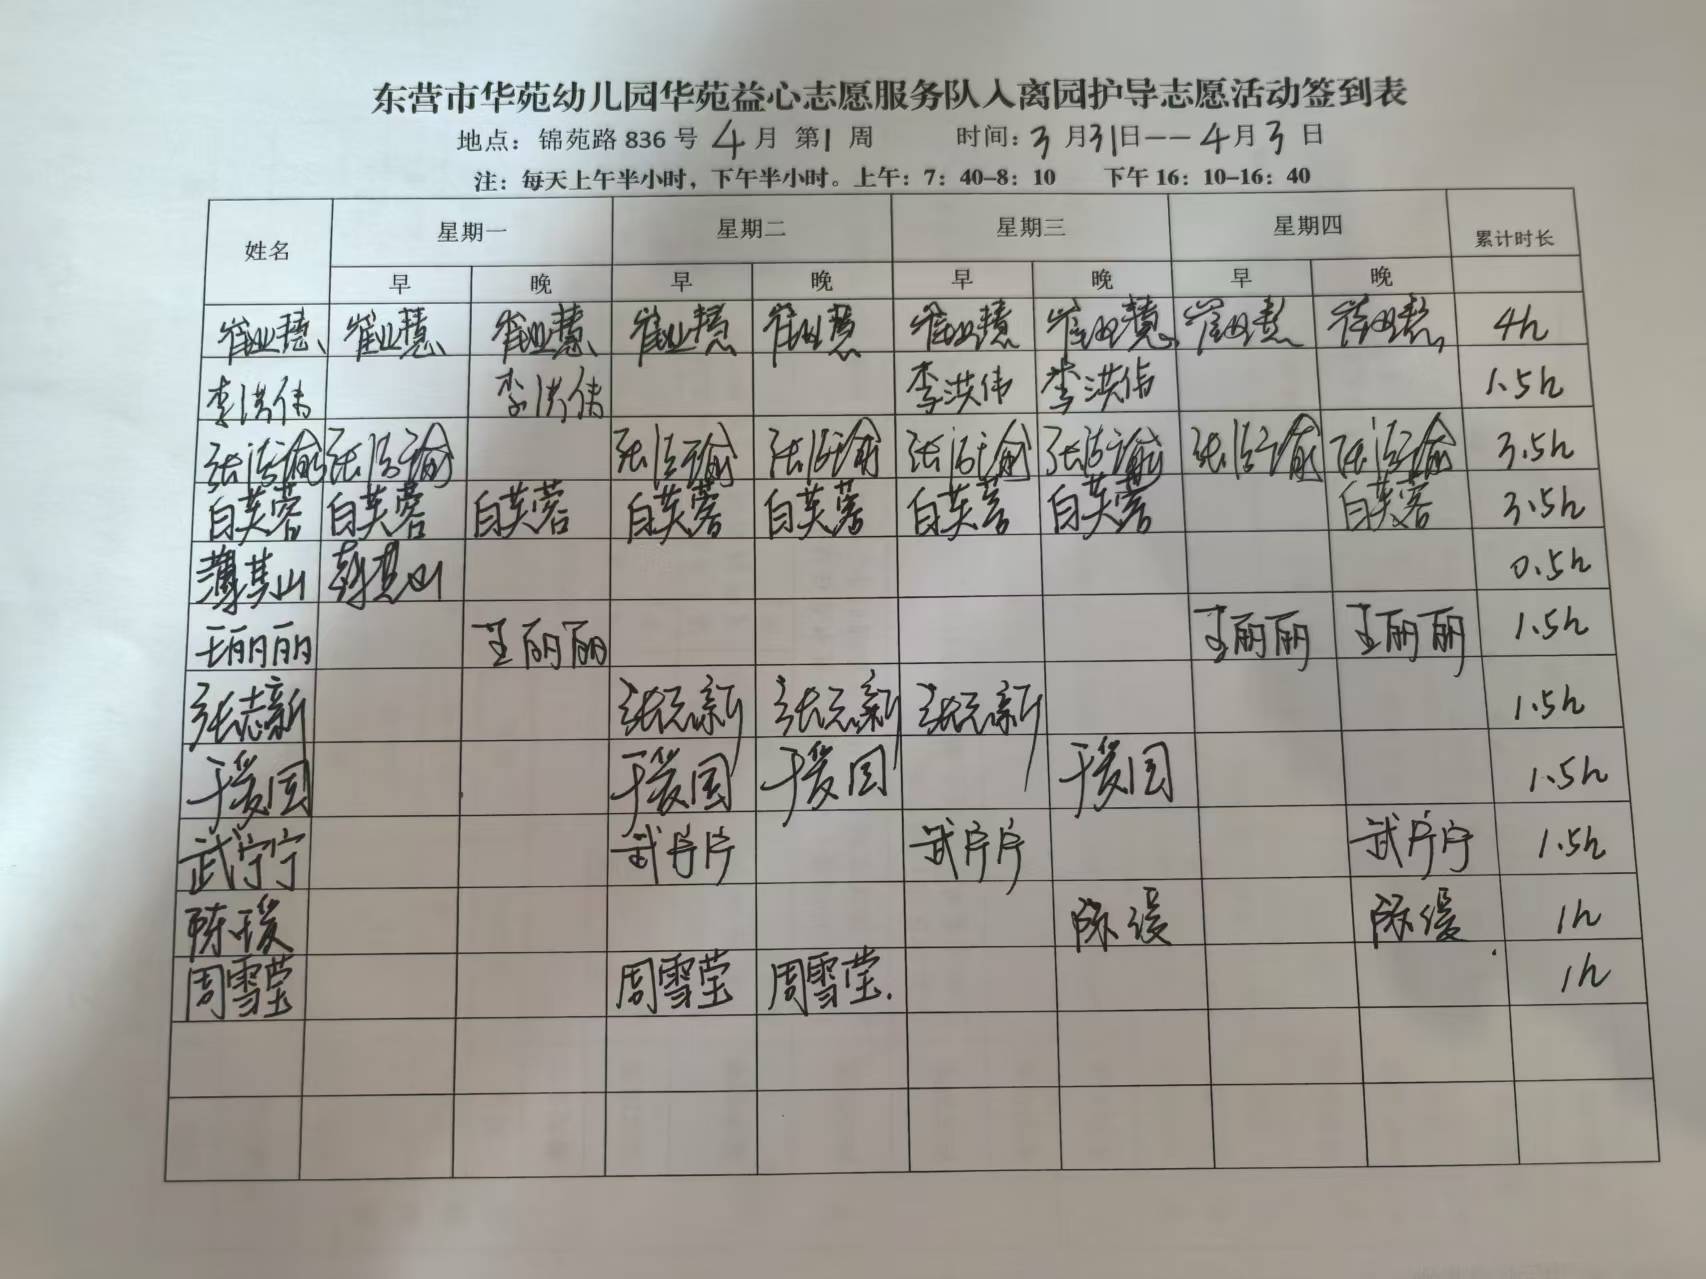 东营市华苑幼儿园华苑益心志愿服务队入离园护导志愿活动签到表
地点：锦苑路836号 4月 第1周 时间：3月31日——4月3日
注：每天上午半小时，下午半小时。上午：7：40-8：10 下午16：10-16：40
姓名 星期一 星期二 星期三 星期四 累计时长
早 晚 早 晚 早 晚 早 晚
崔业慧 崔业慧 崔业慧 崔业慧 崔业慧 崔业慧 崔业慧 崔业慧 崔业慧 4h
李洪伟 李洪伟 李洪伟 李洪伟 1.5h
张洁瑜 张洁瑜 张洁瑜 张洁瑜 张洁瑜 张洁瑜 张洁瑜 张洁瑜 3.5h
白芙蓉 白芙蓉 白芙蓉 白芙蓉 白芙蓉 白芙蓉 白芙蓉 白芙蓉 3.5h
薄其山 薄其山 0.5h
王丽丽 王丽丽 王丽丽 王丽丽 1.5h
张志新 张志新 张志新 张志新 1.5h
于爱国 于爱国 于爱国 于爱国 1.5h
武宁宁 武宁宁 武宁宁 武宁宁 1.5h
陈瑗 陈瑗 陈瑗 1h
周雪莹 周雪莹 周雪莹. 1h